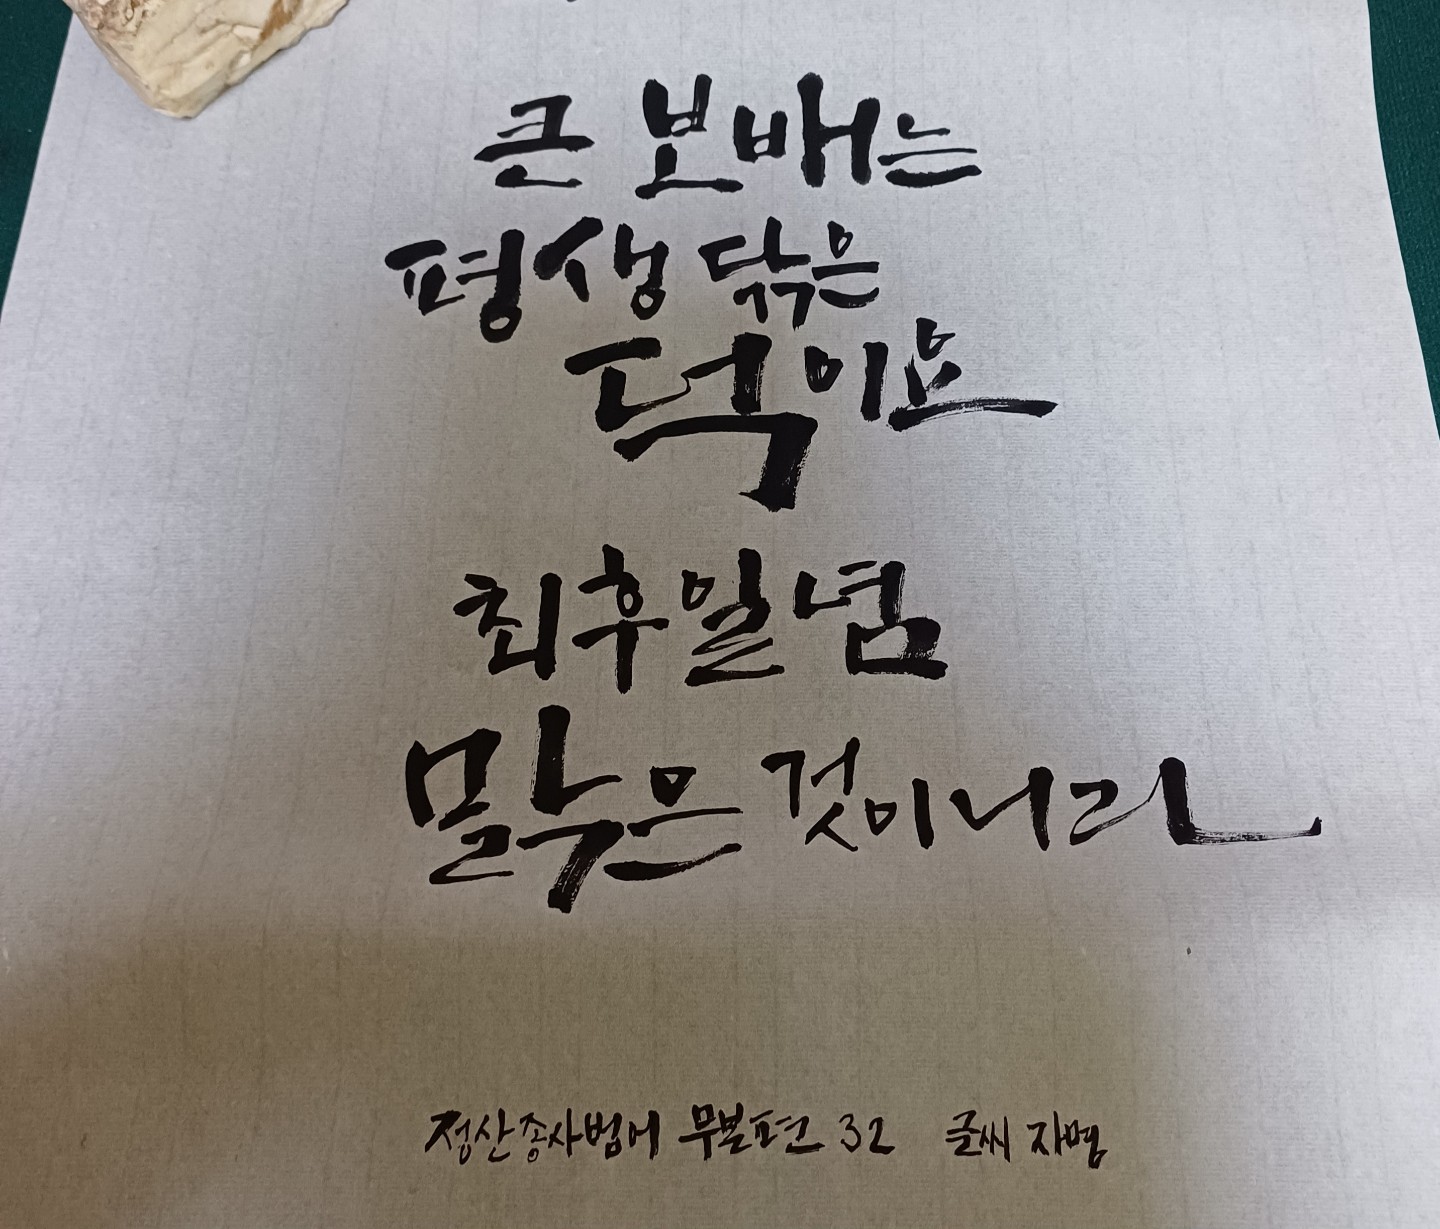 큰 보배는
평생 닦은
덕이요
최후일념
맑은 것이니라
정산종사법어 무본편 32 글씨 자명